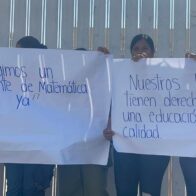 imos un
te de Matemática
ya"
Nuestros
tienen derech
una educació
calidad.